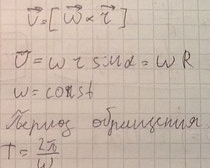 v⃗ = [w⃗ × r⃗]
v = w r sin α = w R
w = const
Период обращения
T = 2π/w